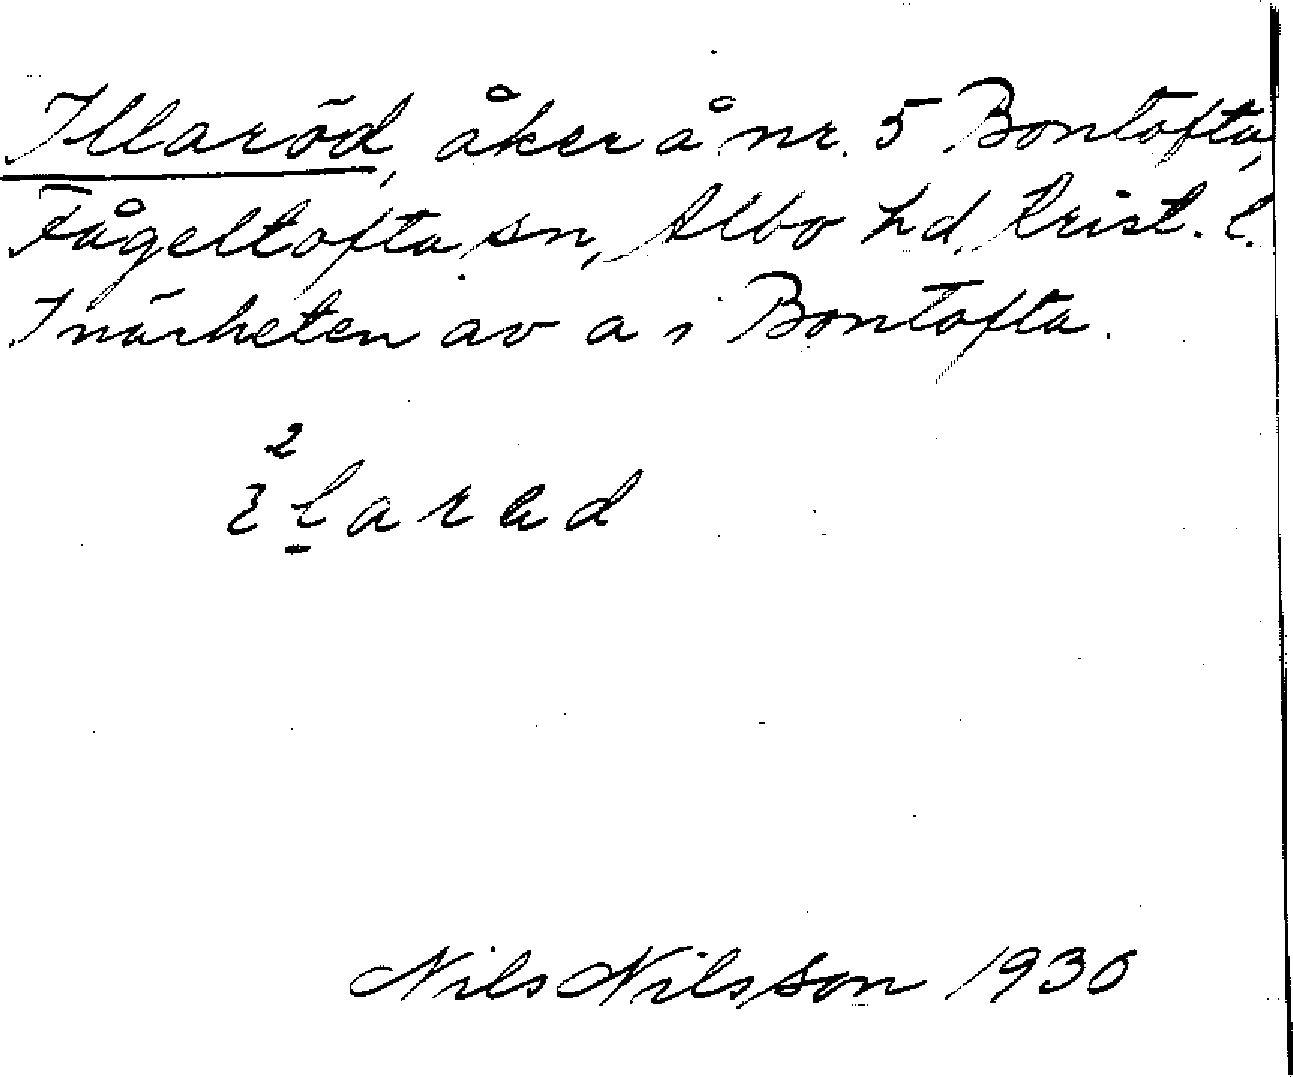 Illaröd, åker å nr. 5 Bontofta,
Fågeltofta sn, Albo hd, Krist. l.
I närheten av a i Bontofta.
2
Nils Nilsson 1930